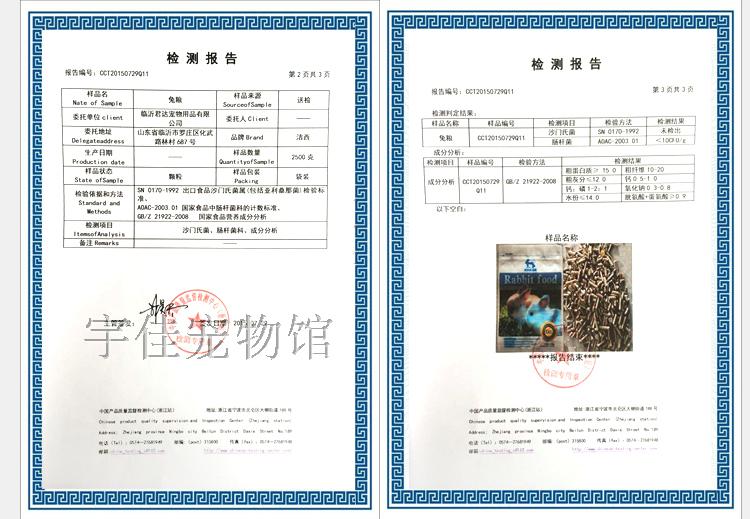 检 测 报 告
报告编号：CCT20150729Q11 第 2 页共 3 页
样品名 Nate of Sample 兔粮 样品来源 SourceofSample 送检
委托单位 client 临沂君达宠物用品有限公司 委托人 Client ——
委托地址 Delegateaddress 山东省临沂市罗庄区化武路林村 687 号 品牌 Brand 洁西
生产日期 Production date —— 样品数量 QuantityofSample 2500 克
样品状态 State of Sample 颗粒 样品包装 Packing 袋装
检验依据和方法 Standard and Methods
SN 0170-1992 出口食品沙门氏菌属(包括亚利桑那菌)检验标准、
AOAC-2003.01 国家食品中肠杆菌科的计数标准、
GB/Z 21922-2008 国家食品营养成分分析
检测项目 ItemsofAnalysis 沙门氏菌、肠杆菌科、成分分析
备注 Remarks ——
宇佳宠物馆
检测专用章
中国产品质量监督检测中心(浙江站) 地址:浙江省宁波市北仑区大碶街道 189 号
Chinese product quality supervision and Inspection Center (Zhejiang station)
Address: Zhejiang province Ningbo city Beilun District Daxie Street No.189
电话(Tel): 0574-27681949 邮编:(post)315800 传真(Fax): 0574-27681948
检 测 报 告
报告编号：CCT20150729Q11 第 3 页共 3 页
检测判定结果：
样品名称 样品编号 检测项目 检验方法 检测结果
兔粮 CCT20150729Q11 沙门氏菌 SN 0170-1992 未检出
肠杆菌 AOAC-2003.01 <10CFU/g
成分分析：
检测项目 样品编号 检验方法 检测结果
成分分析 CCT20150729Q11 GB/Z 21922-2008 粗蛋白质≥ 15.0 粗纤维 10-20
粗灰分≤12.0 钙 0.5-1.0
钙：磷 1-2：1 氯化钠 0.3-0.8
水份≤14.0 胱氨酸+蛋氨酸≥0.9
以下空白：
样品名称
Rabbit food
*****报告结束****
检测专用章
中国产品质量监督检测中心(浙江站) 地址:浙江省宁波市北仑区大碶街道 189 号
Chinese product quality supervision and Inspection Center (Zhejiang station)
Address: Zhejiang province Ningbo city Beilun District Daxie Street No.189
电话(Tel): 0574-27681949 邮编:(post)315800 传真(Fax): 0574-27681948